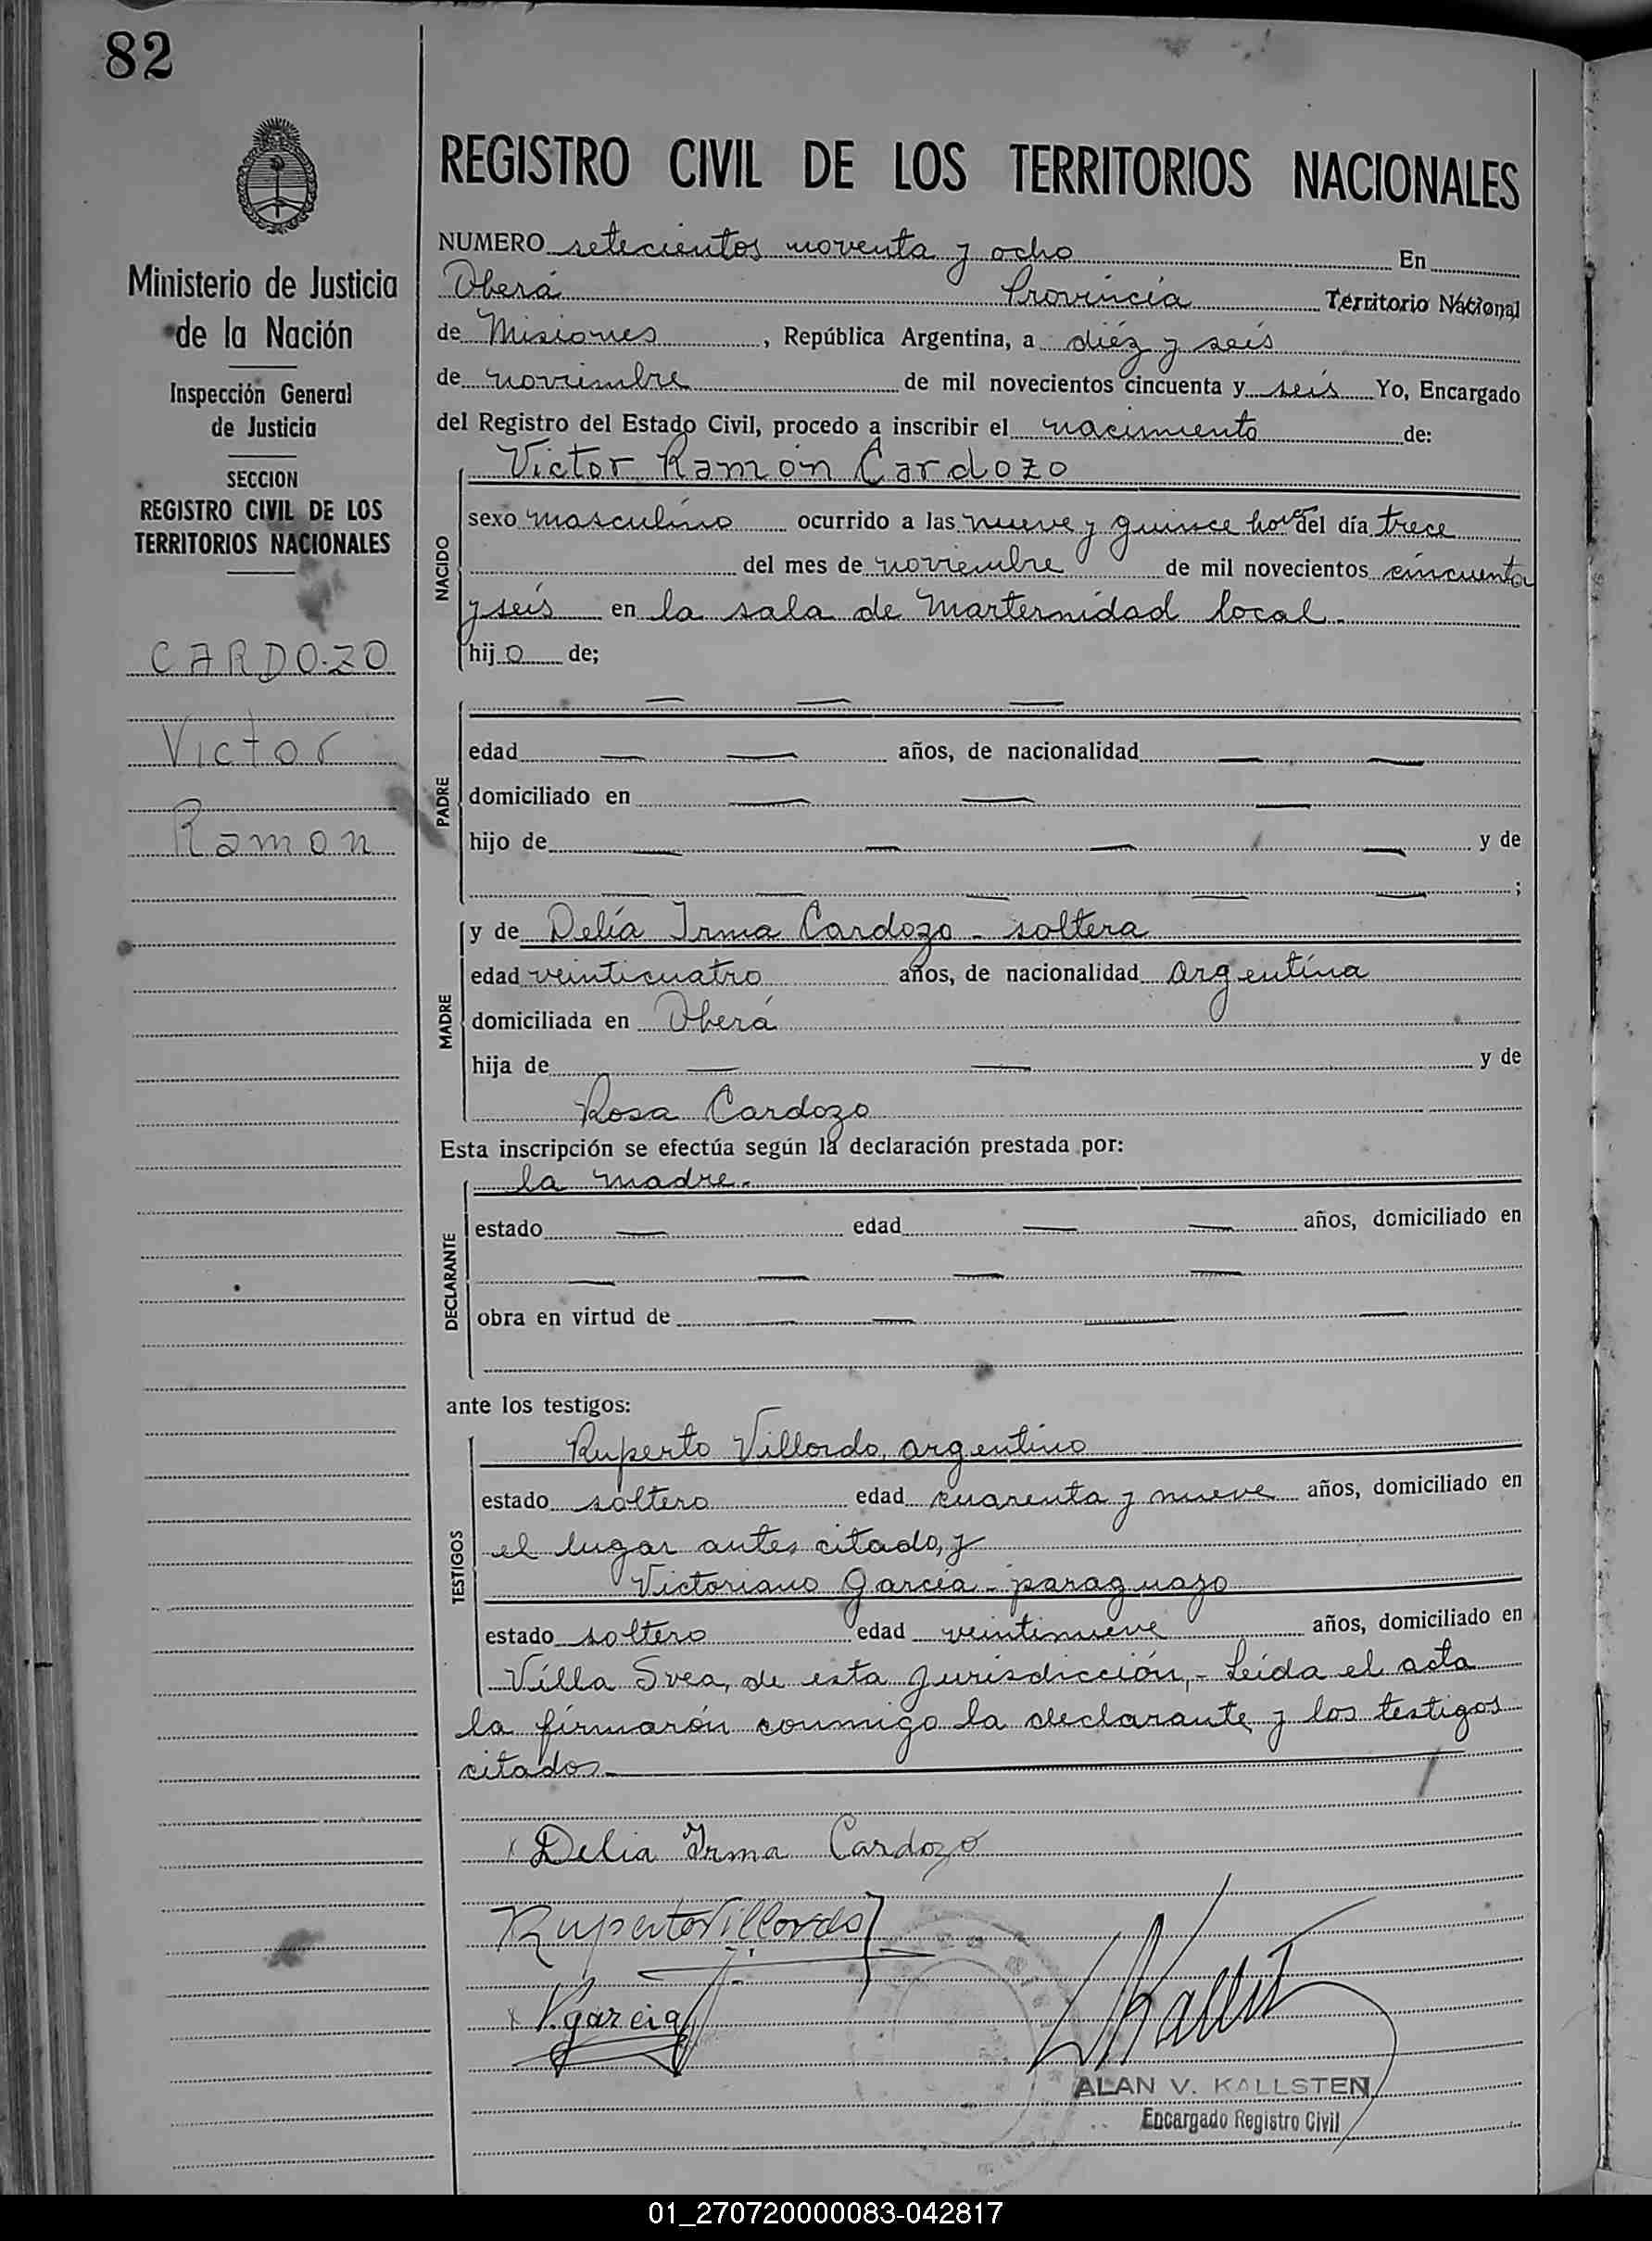 82
REGISTRO CIVIL DE LOS TERRITORIOS NACIONALES
Ministerio de Justicia
de la Nación
Inspección General
de Justicia
SECCION
REGISTRO CIVIL DE LOS
TERRITORIOS NACIONALES
CARDOZO
Victor
Ramon
NUMERO setecientos noventa y ocho En
Oberá Provincia Territorio Nacional
de Misiones, República Argentina, a diéz y seis
de noviembre de mil novecientos cincuenta y seis Yo, Encargado
del Registro del Estado Civil, procedo a inscribir el nacimiento de:
Victor Ramón Cardozo
NACIDO
sexo masculino ocurrido a las nueve y quince hor del día trece
del mes de noviembre de mil novecientos cincuenta
y seis en la sala de Marternidad local.
hijo de;
PADRE
edad años, de nacionalidad
domiciliado en
hijo de y de
;
MADRE
y de Delia Irma Cardozo - soltera
edad veinticuatro años, de nacionalidad argentina
domiciliada en Oberá
hija de y de
Rosa Cardozo
Esta inscripción se efectúa según la declaración prestada por:
la madre.
DECLARANTE
estado edad años, domiciliado en
obra en virtud de
ante los testigos:
TESTIGOS
Ruperto Villordo, argentino
estado soltero edad cuarenta y nueve años, domiciliado en
el lugar antes citado, y
Victoriano García - paraguayo
estado soltero edad veintinueve años, domiciliado en
Villa Svea, de esta jurisdicción,- Leída el acta
la firmarón conmigo la declarante y los testigos
citados
Delia Irma Cardozo
Ruperto Villordo
V. garcia
ALAN V. KALLSTEN
Encargado Registro Civil
01_270720000083-042817